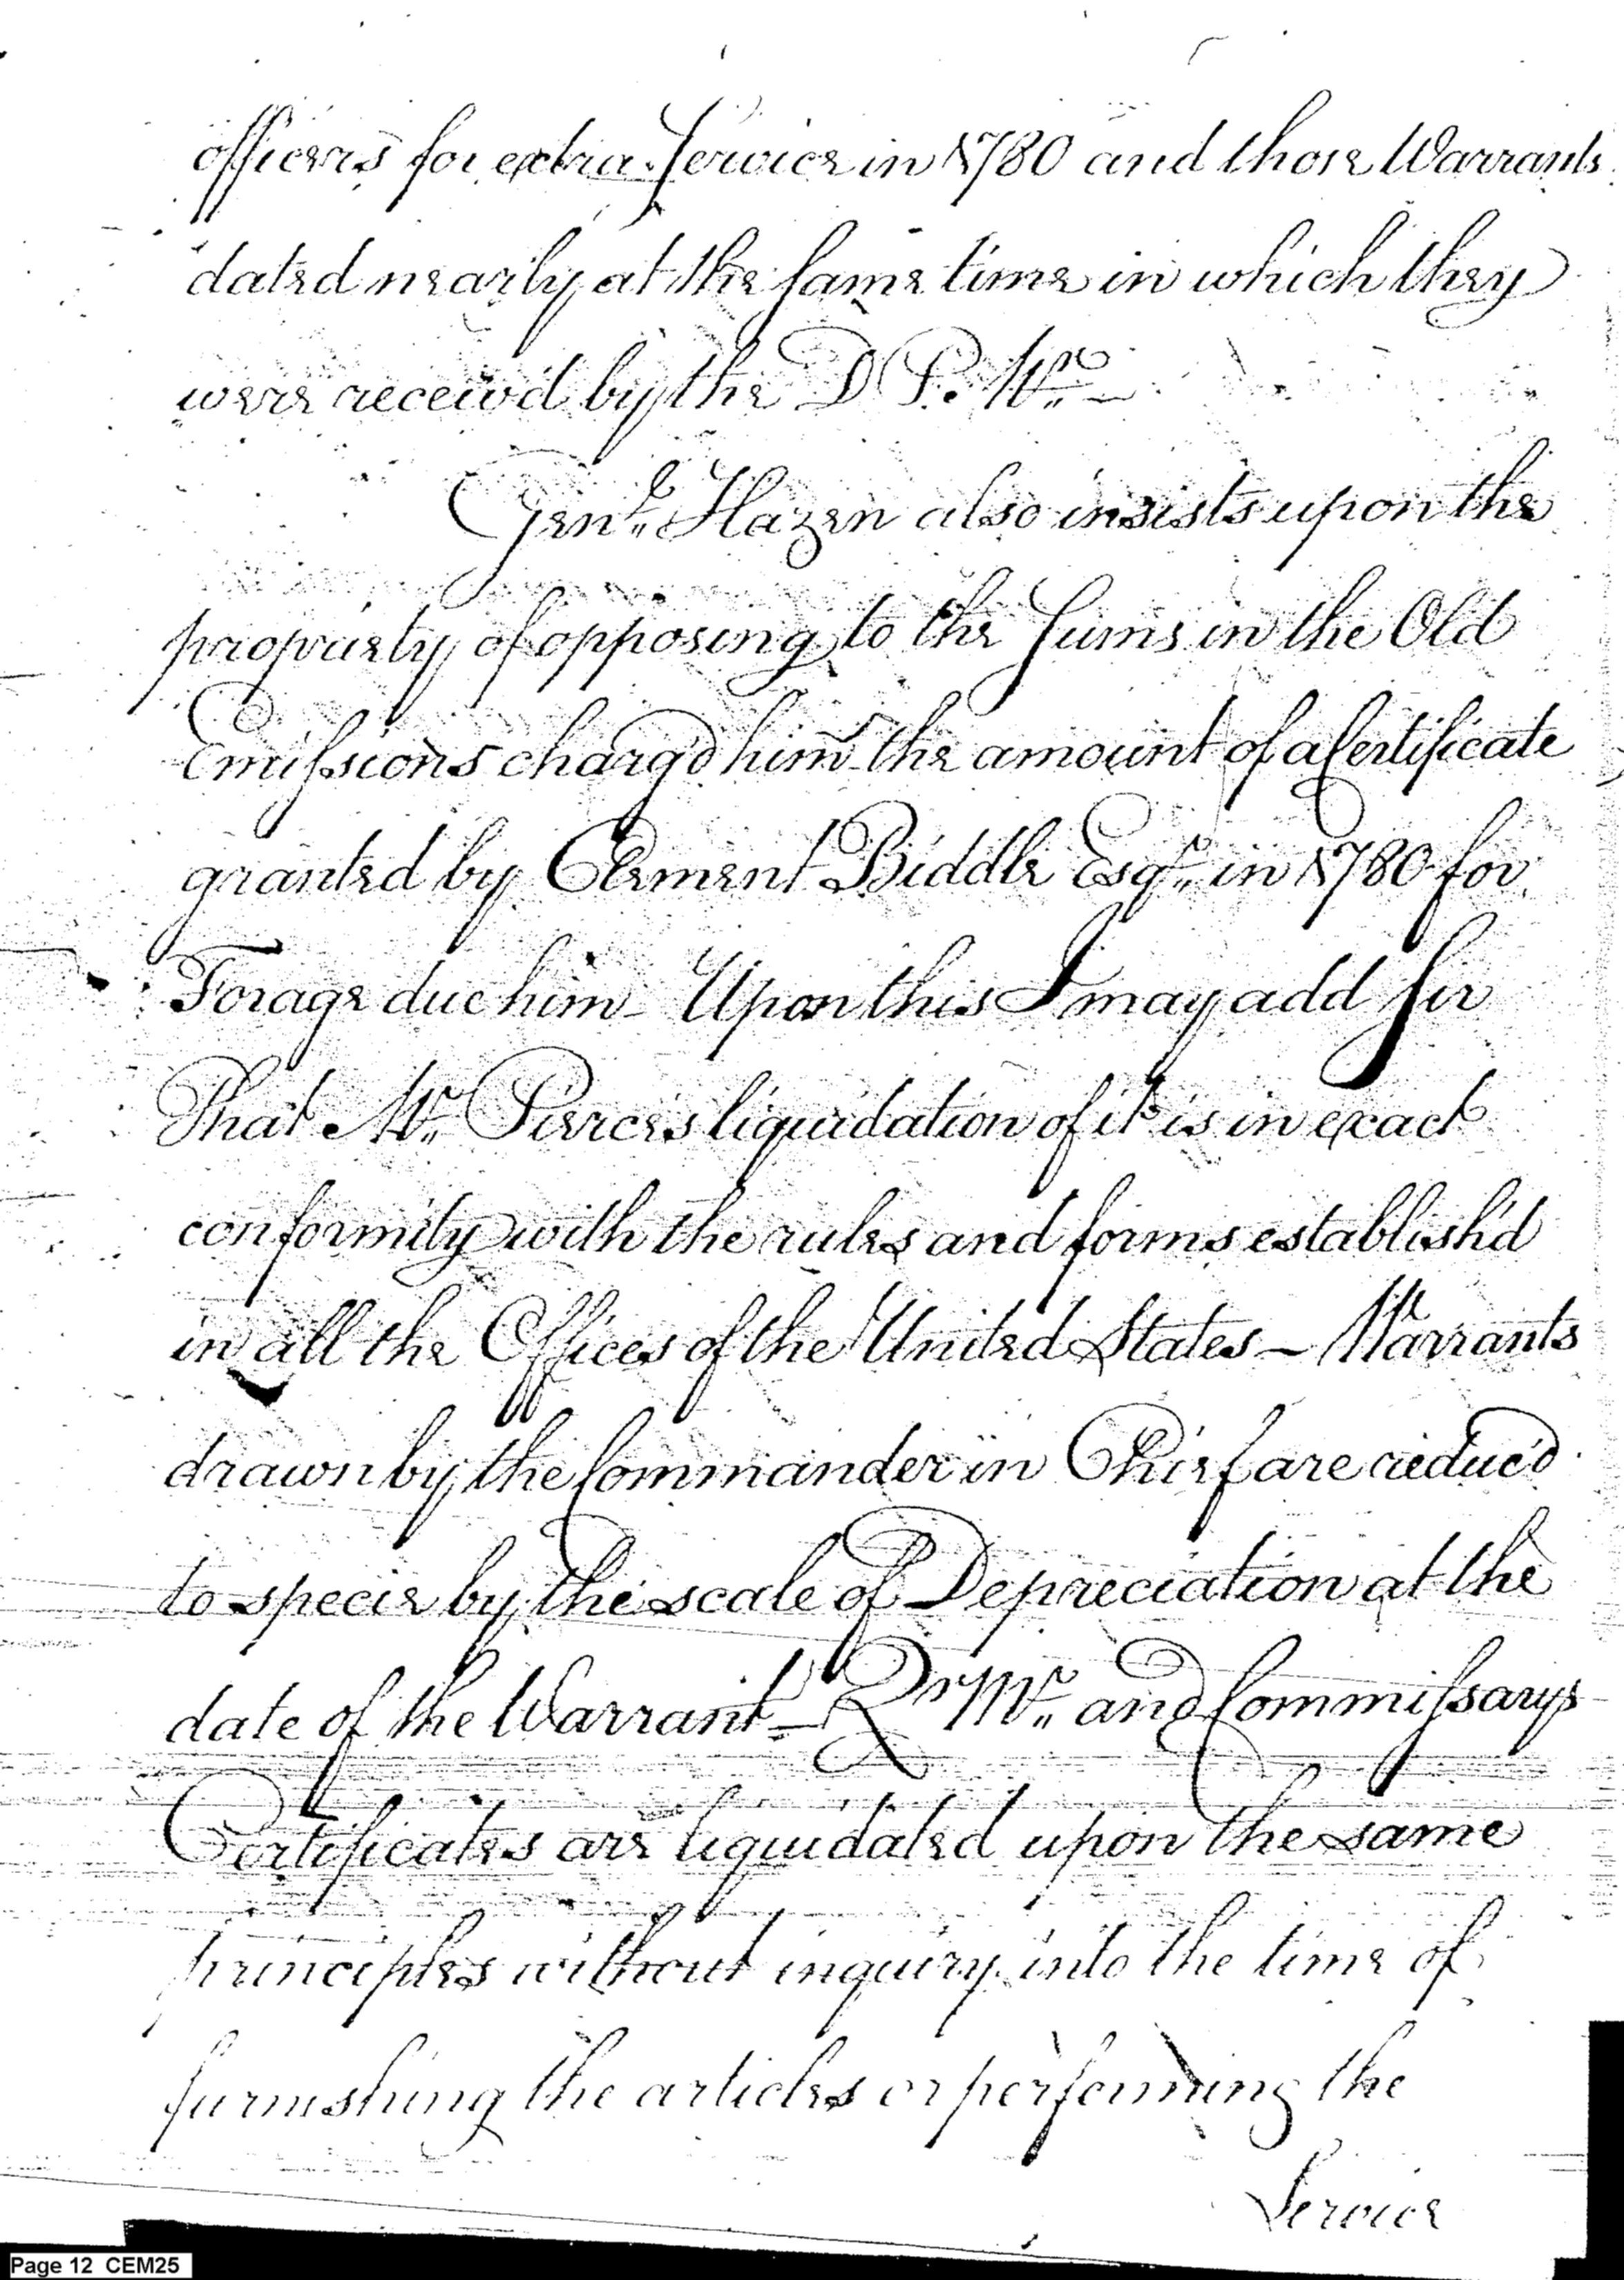 officers for extra Service in 1780 and those Warrants
dated nearly at the same time in which they
were receiv'd by the D P. Mr
Genl. Hazen also insists upon the
propriety of opposing to the Sums in the Old
Emissions charg'd him the amount of a Certificate
granted by Clement Biddle Esqr. in 1780 for
Forage due him - Upon this I may add Sir
That Mr. Pierce's liquidation of it is in exact
conformity with the rules and forms establish'd
in all the Offices of the United States - Warrants
drawn by the Commander in Chief are reduc'd
to specie by the scale of Depreciation at the
date of the Warrant - Qr Mr. and Commissarys
Certificates are liquidated upon the same
principles without inquiry into the time of
furnishing the articles or performing the
Service
Page 12 CEM25